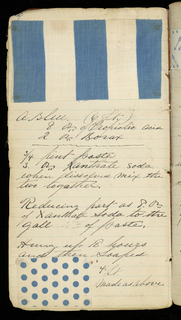 A Blue
2 Oz Propiolic acid
2 Oz Borax
3/4 pint paste
3 Oz Xanthate Soda
when dissolved mix the
two together.
Reducing part as 8 Oz
of Xanthate Soda to the
gall of paste.
Hung up 12 hours
and then soaped
made as above